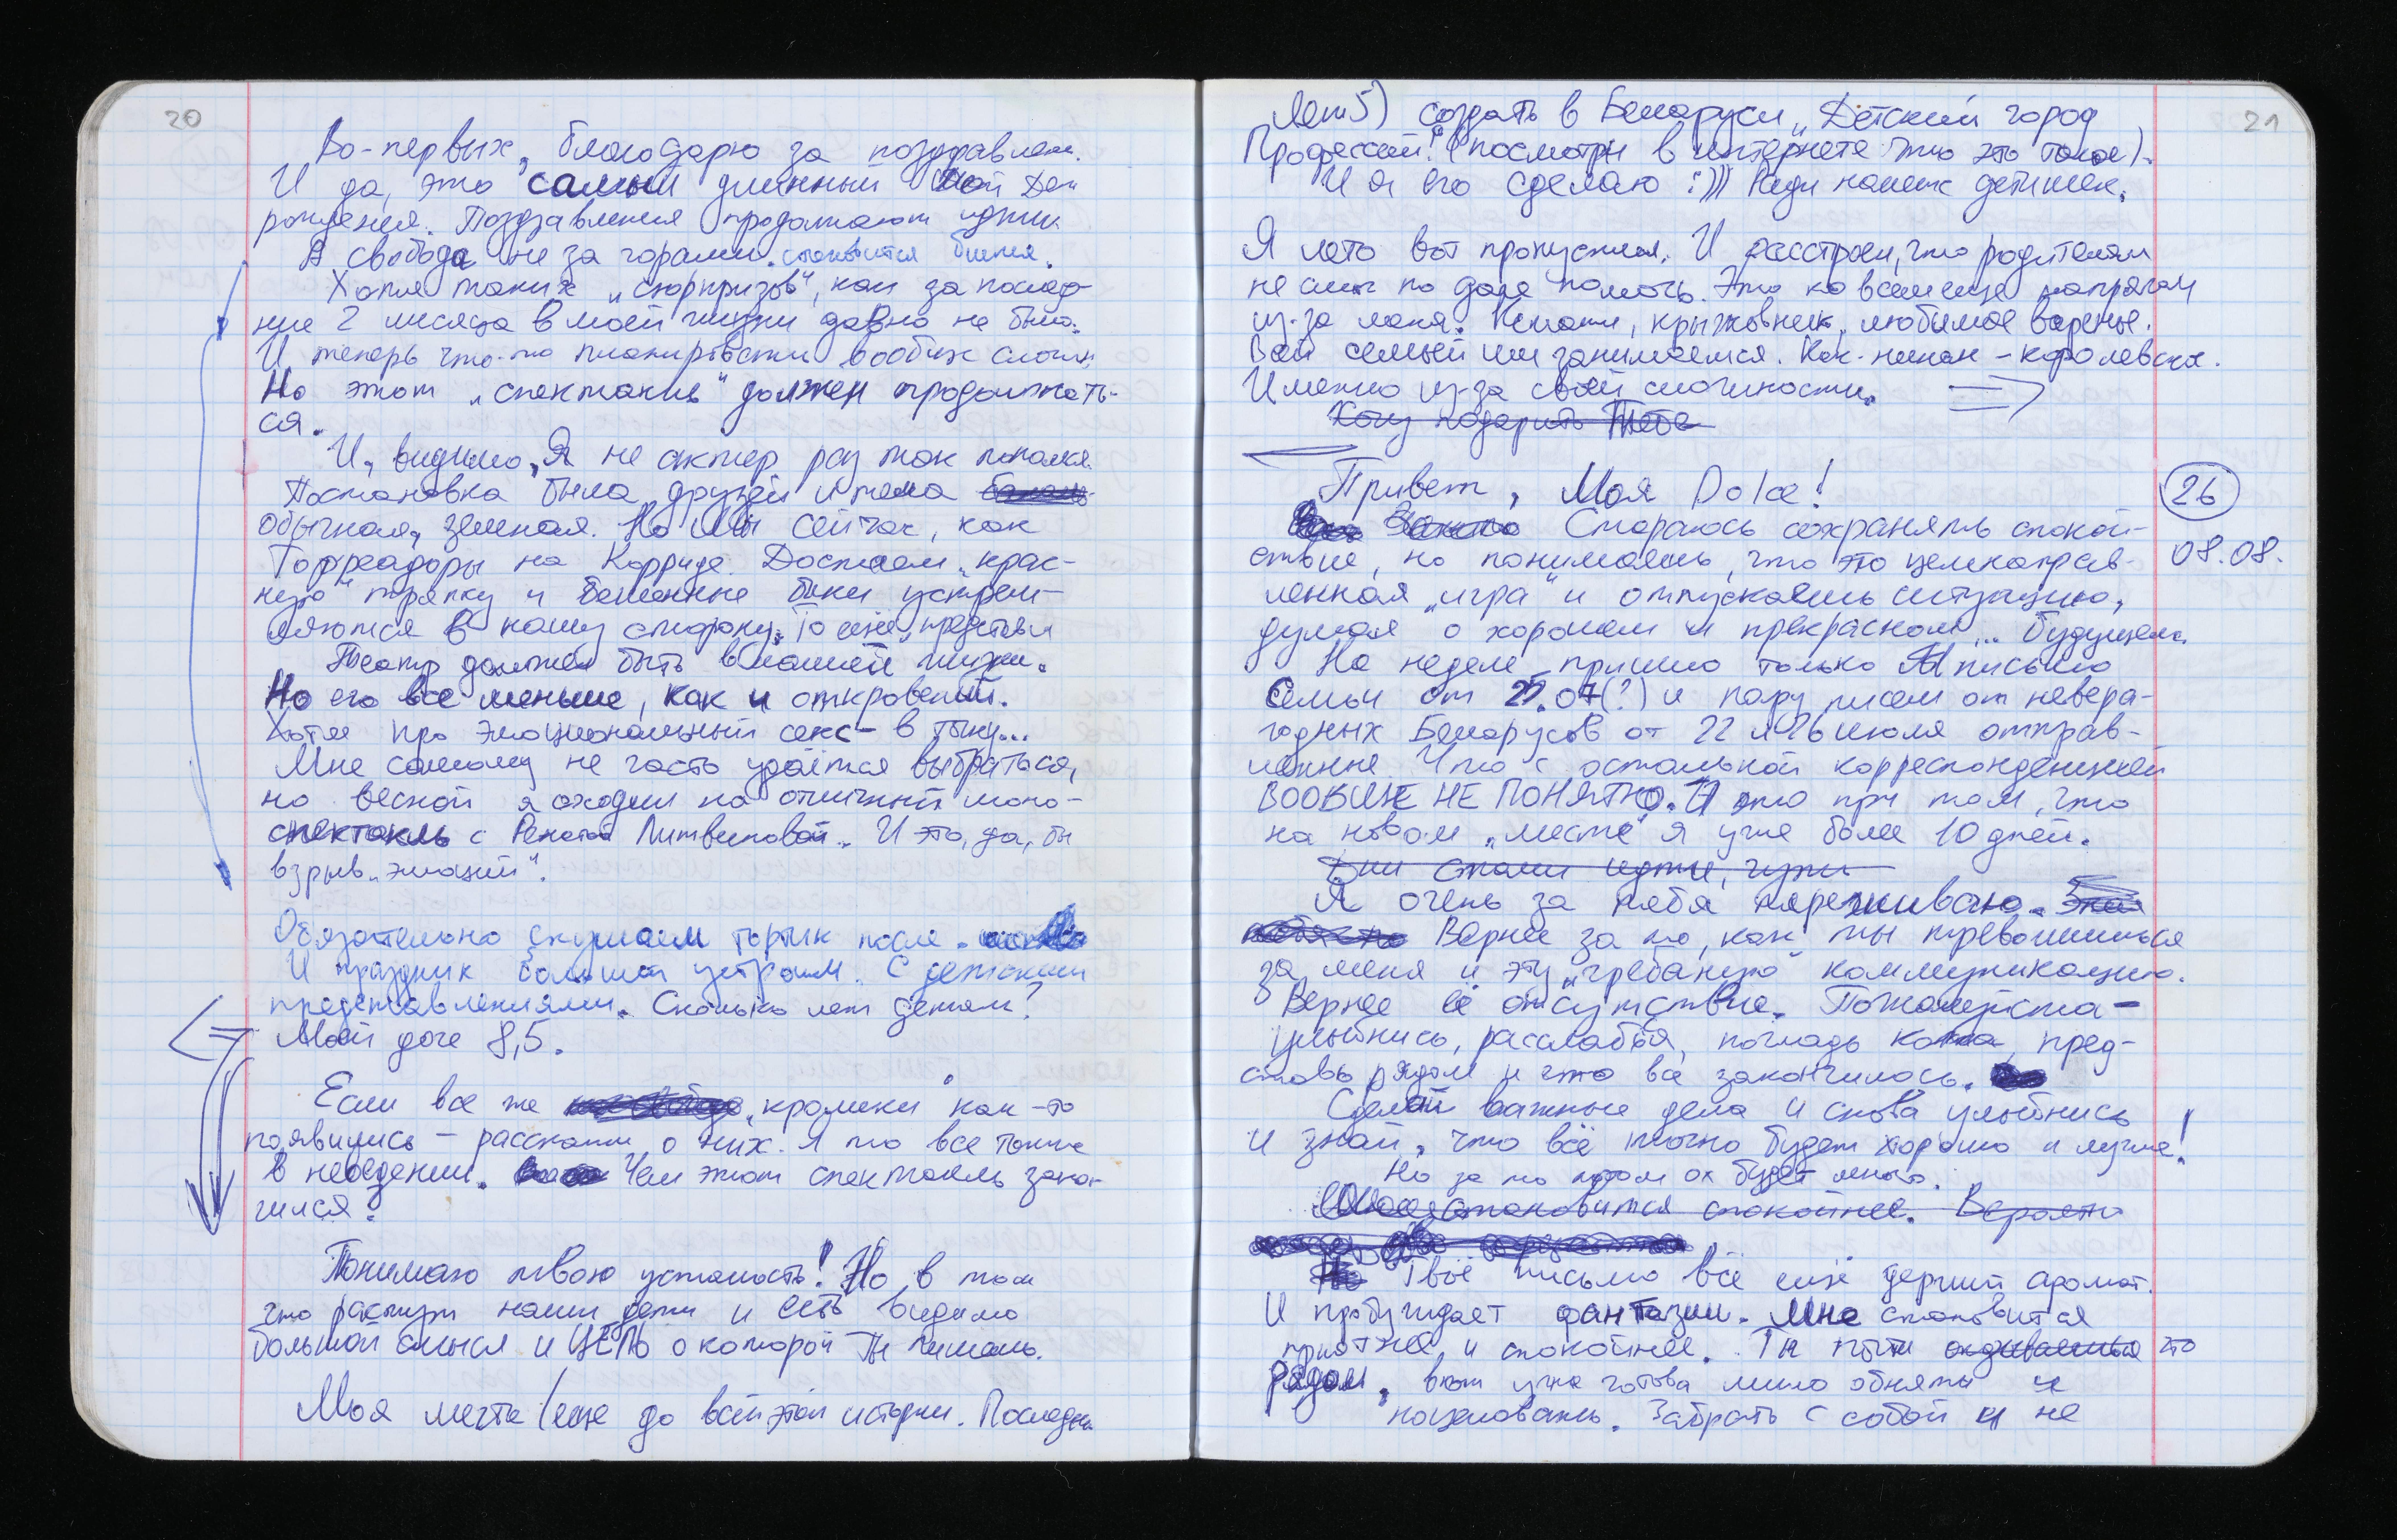 20
Во-первых, благодарю за поздравлен.
И да, это самый длинный мой Ден
рождения. Поздравления продолжают идти.
А свобода не за горами. становится ближе.
Хотя таких „сюрпризов", как за послед-
ние 2 месяца в моей жизни давно не было.
И теперь что-то планировать вообще сложн.
Но этот „спектакль" должен продолжать-
ся.
И, видимо, Я не актер раз так попался.
Постановка была друзей и тема
обычная, земная. Но мы сейчас, как
Торреадоры на Корриде. Достаем „крас-
ную" тряпку и бешенные быки устрем-
ляются в нашу сторону. То ещё представл
Театр должен быть в нашей жизни.
Но его все меньше, как и откровений.
Хотя про эмоциональный секс - в точку...
Мне самому не часто удаётся выбраться,
но весной я сходил на отличный моно-
спектакль с Ренатой Литвиновой. И это, да, был
взрыв „эмоций".
Обязательно скушаем тортик после.
И праздник большой устроим. С детскими
представлениями. Сколько лет детям?
Моей доче 8,5.
Если все же кролики как-то
появились - расскажи о них. Я то все также
в неведении. Чем этот спектакль закон-
чился.
Понимаю твою усталость! Но в том
что растут наши дети и есть видимо
большой смысл и ЦЕЛЬ о которой Ты пишешь.
Моя мечта (еще до всей этой истории. Последн.
21
лет 5) создать в Беларуси „Детский город
Профессий". (посмотри в интернете что это такое).
И я его сделаю :))) Ради наших детишек.
Я лето вот пропустил. И расстроен, что родителям
не смог по даче помочь. Это ко всем еще напрягам
из-за меня. Томаты, крыжовник, любимое варенье.
Всей семьей им занимаемся. Как-никак - королевское.
Именно из-за своей сложности. =>
Хочу подарить Тебе
Привет, Моя Dolce!
26
Стараюсь сохранять спокой-
08.08.
ствие, но понимаешь, что это целенаправ-
ленная „игра" и отпускаешь ситуацию,
думая о хорошем и прекрасном... будущем.
На неделе пришло только 1 письмо
Семьи от 27.07(?) и пару писем от невера-
годных Беларусов от 22 и 26 июля отправ-
ленные. Что с остальной корреспонденцией
ВООБЩЕ НЕ ПОНЯТНО. И это при том, что
на новом „месте" я уже более 10 дней.
Дни стали идти, чуть
Я очень за тебя переживаю.
Вернее за то, как ты тревожишься
за меня и эту „гребаную" коммуникацию.
Вернее её отсутствие. Пожалуйста -
улыбнись, расслабься, погладь кота, пред-
ставь рядом и что все закончилось.
Сделай важные дела и снова улыбнись
и знай, что всё точно будет хорошо и лучше!
Но за то потом ох будет много.
становится спокойнее. Вероятн
Твоё письмо всё ещё держит аромат.
И пробуждает фантазии. Мне становится
приятнее и спокойнее. Ты почти что
рядом, вот уже готова мило обнять и
поцеловать. Забрать с собой и не